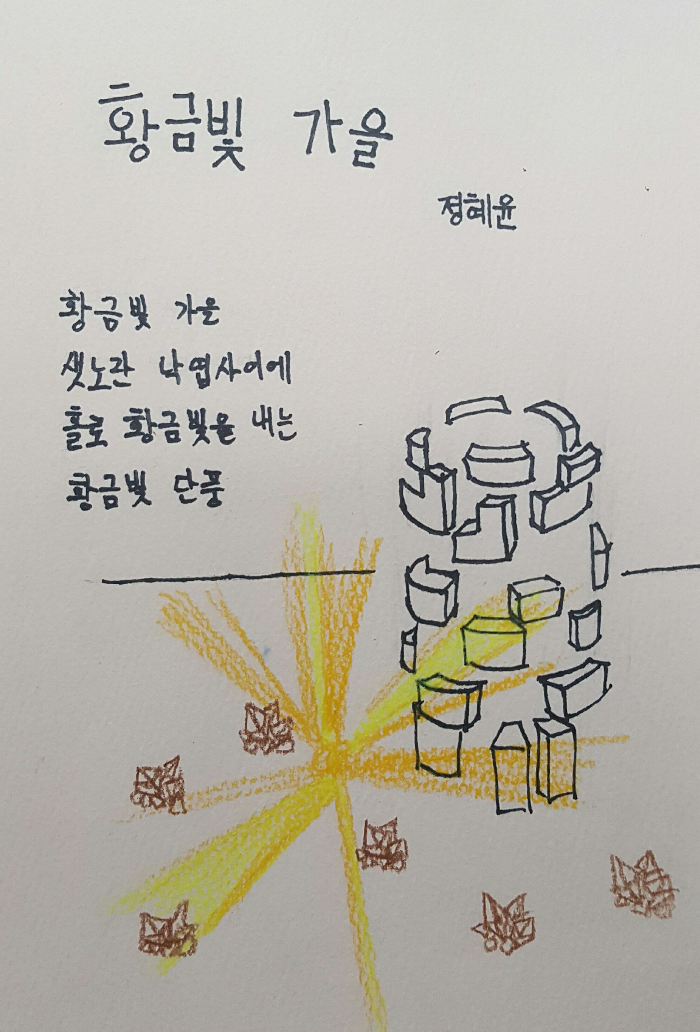 황금빛 가을
정혜윤
황금빛 가을
샛노란 낙엽사이에
홀로 황금빛을 내는
황금빛 단풍